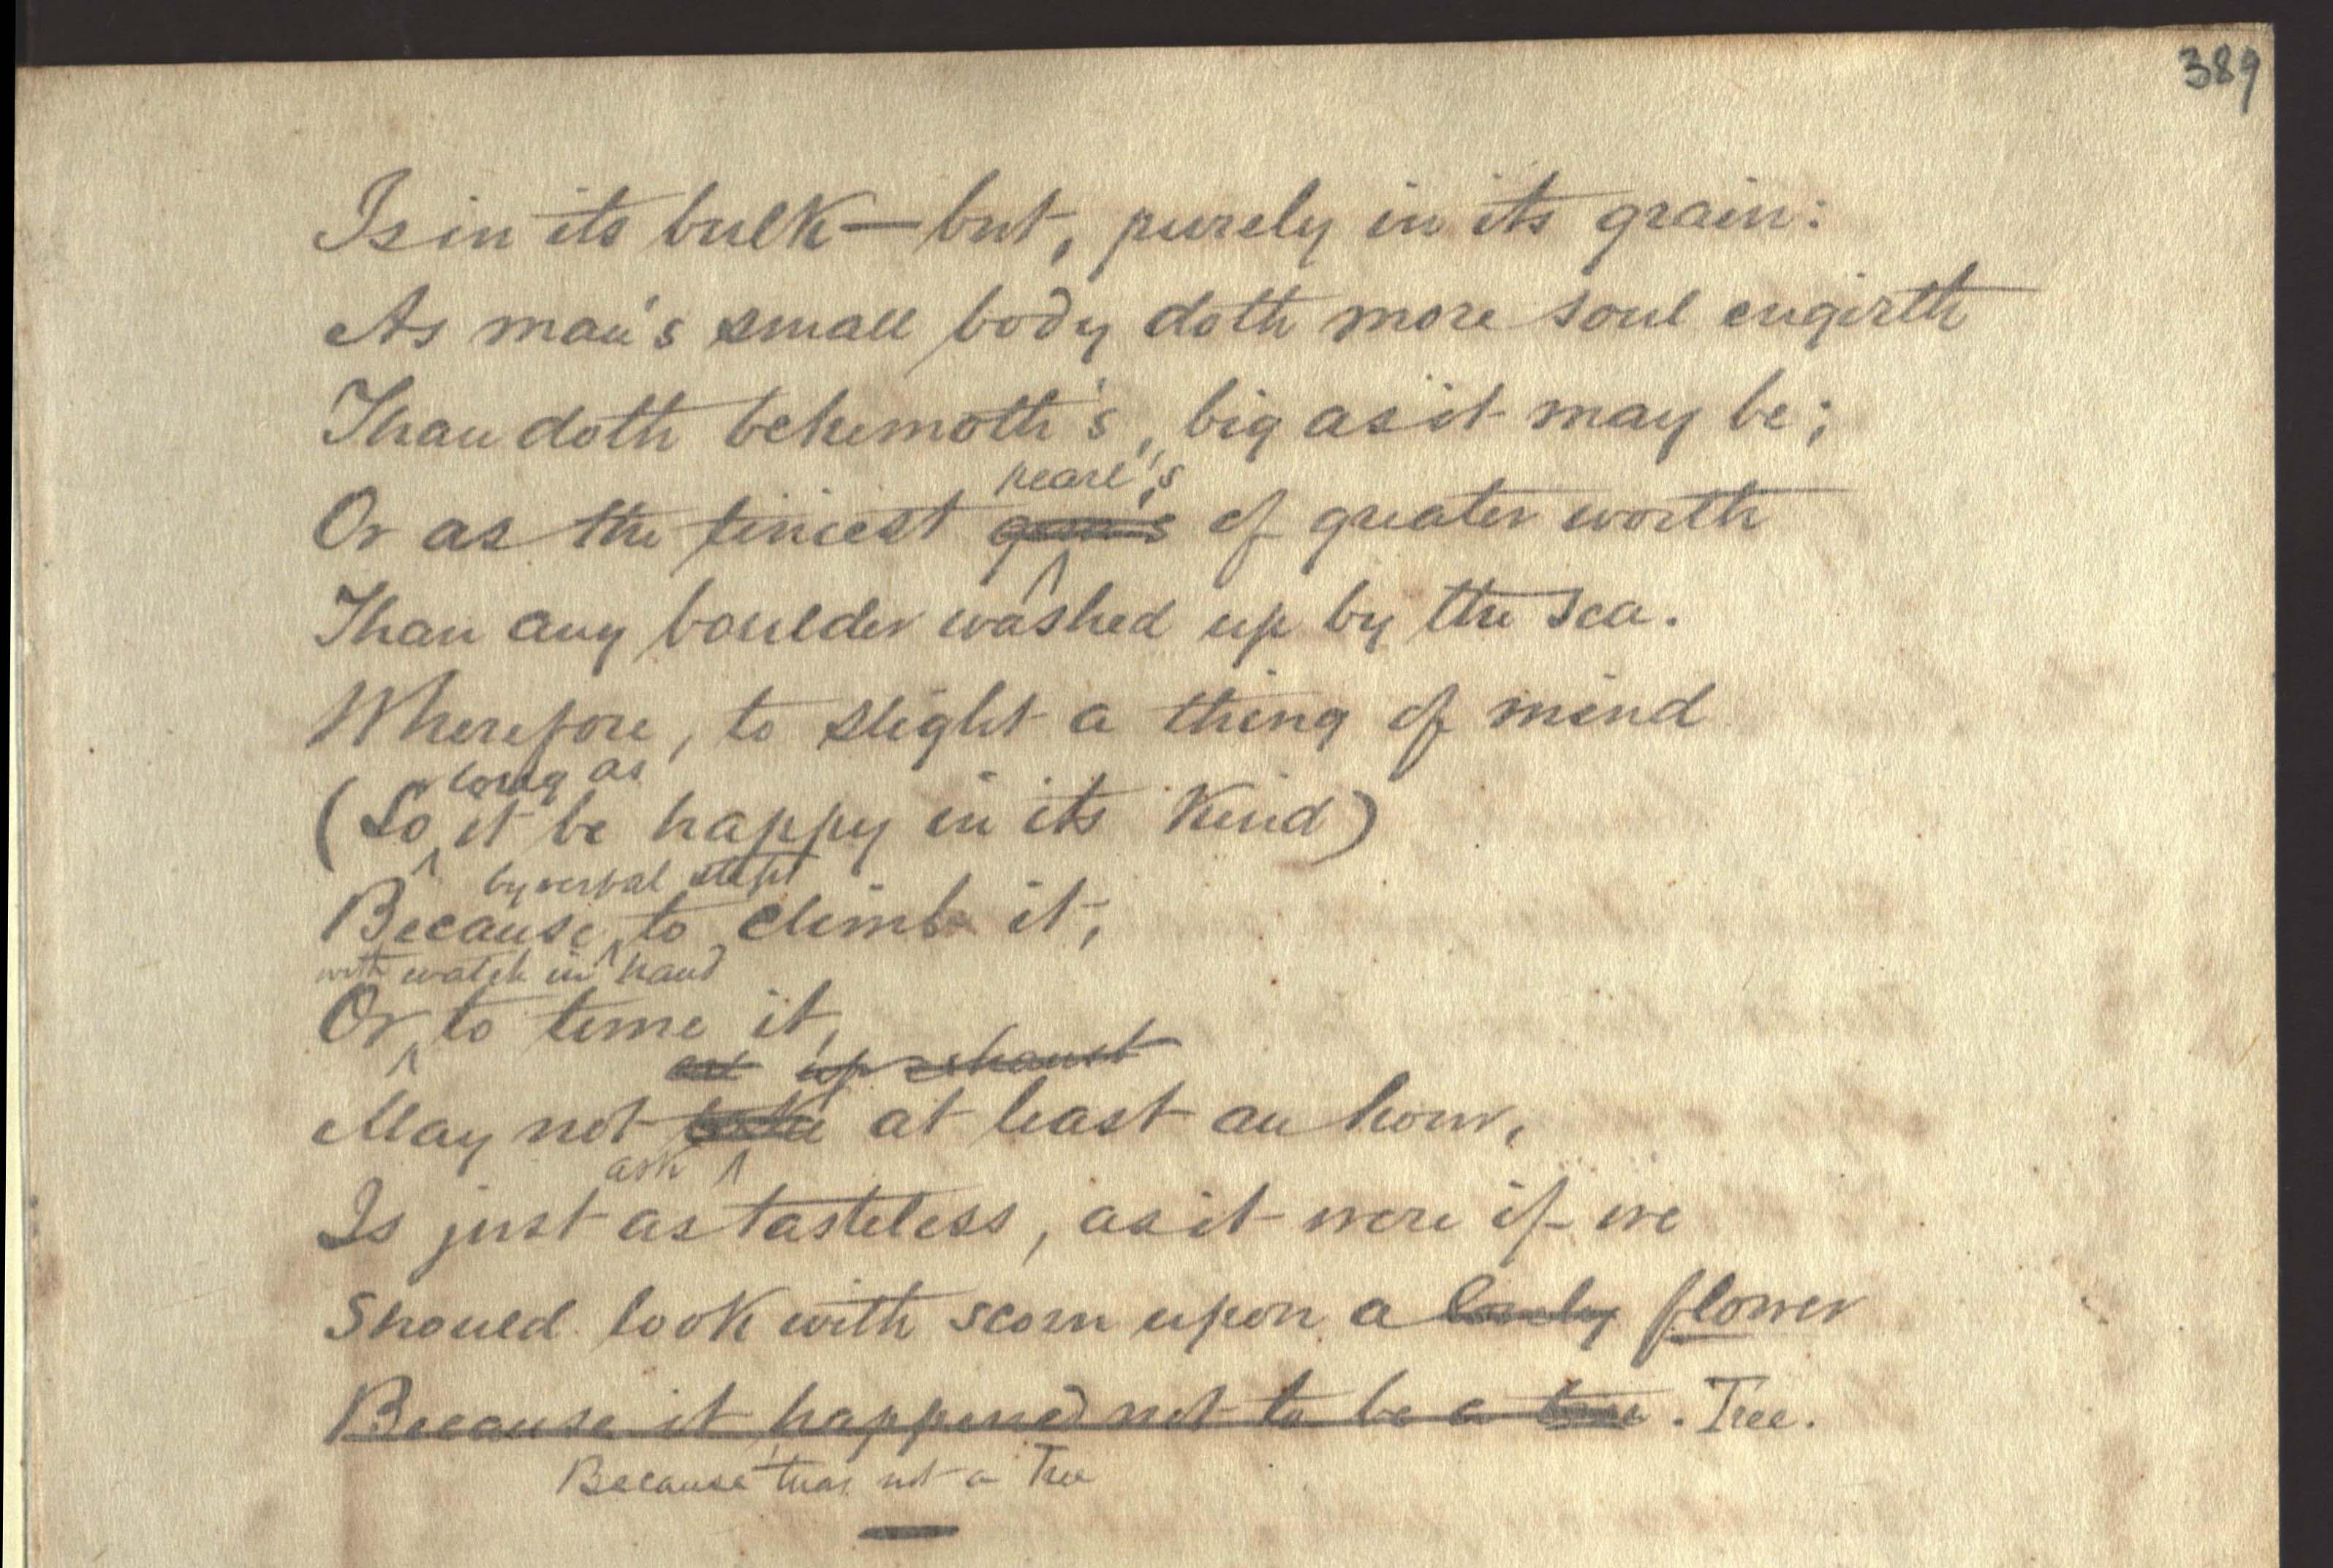 389
Is in its bulk—but, purely in its grain:
As man's small body doth more soul engirth
Than doth behemoth's, big as it may be;
pearl's
Or as the tiniest gem's of greater worth
Than any boulder washed up by the sea.
Wherefore, to slight a thing of mind
long as
(So it be happy in its kind)
by verbal steps
Because to climb it,
with watch in hand
Or to time it,
up exhaust
May not take at least an hour,
ask
Is just as tasteless, as it were if we
Should look with scorn upon a lovely flower
Because it happened not to be a tree. Tree.
Because 'twas not a Tree